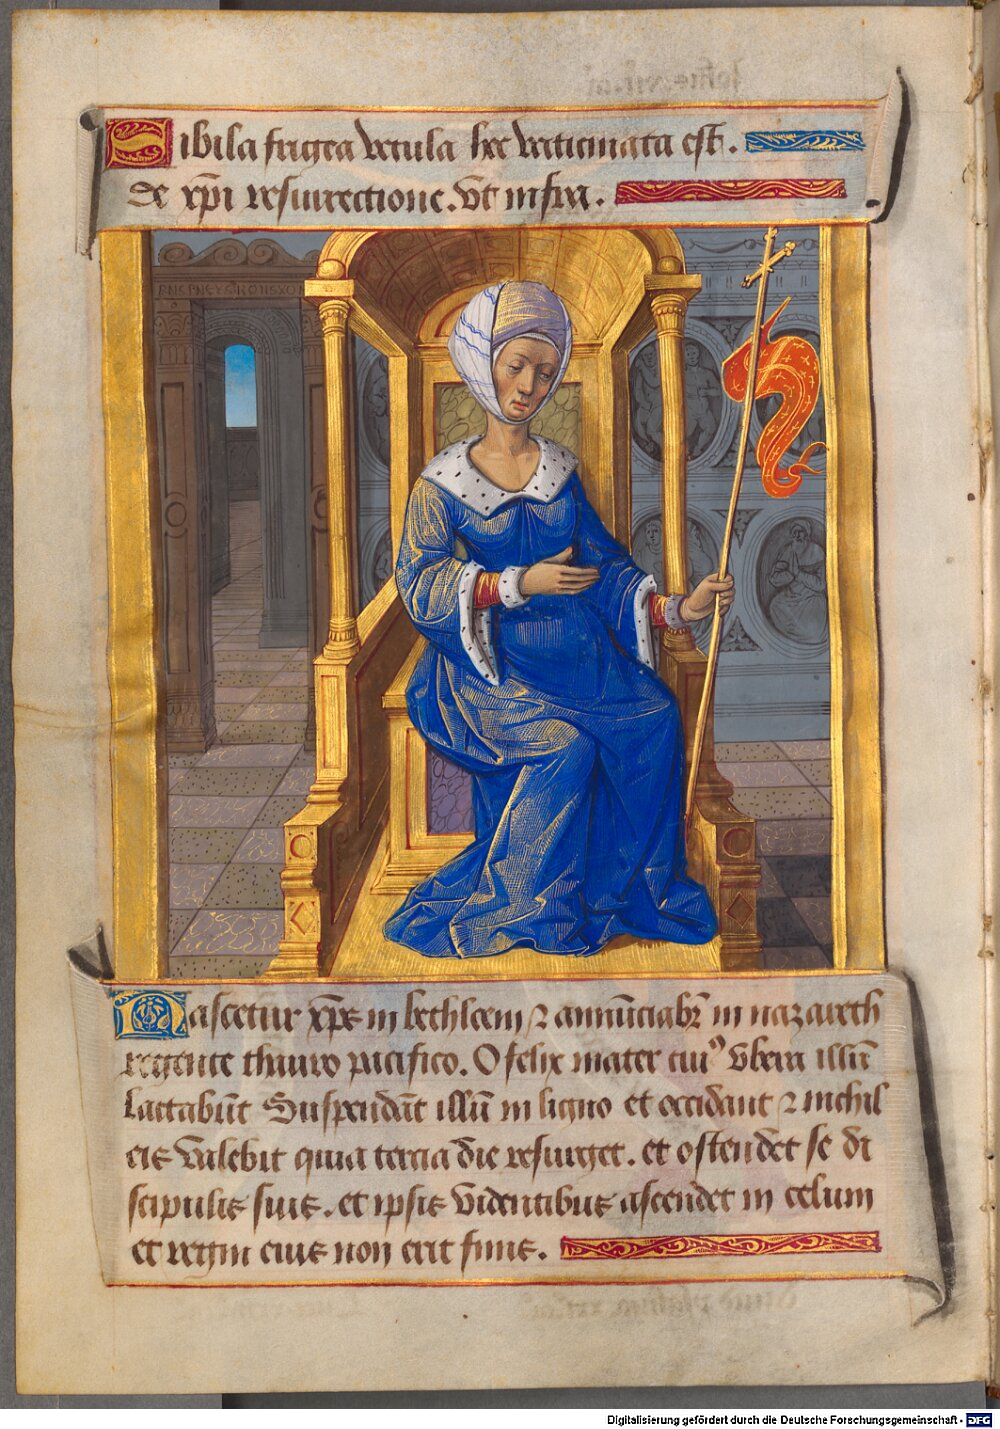 Sibila frigea vetula hec vaticinata est.
de xp̄i resurrectione. vt infra.
Nascetur xp̄s in bethleem ⁊ annūciabr̄ in nazareth
regente thauro pacifico. O felix mater cuiꝰ vbera illū
lactabūt Suspendāt illū in ligno et occidant ⁊ nichil
eis valebit quia tercia die resurget. et ostendet se di
scipulis suis. et ipsis videntibus ascendet in celum
et regni eius non erit finis.
Digitalisierung gefördert durch die Deutsche Forschungsgemeinschaft - DFG